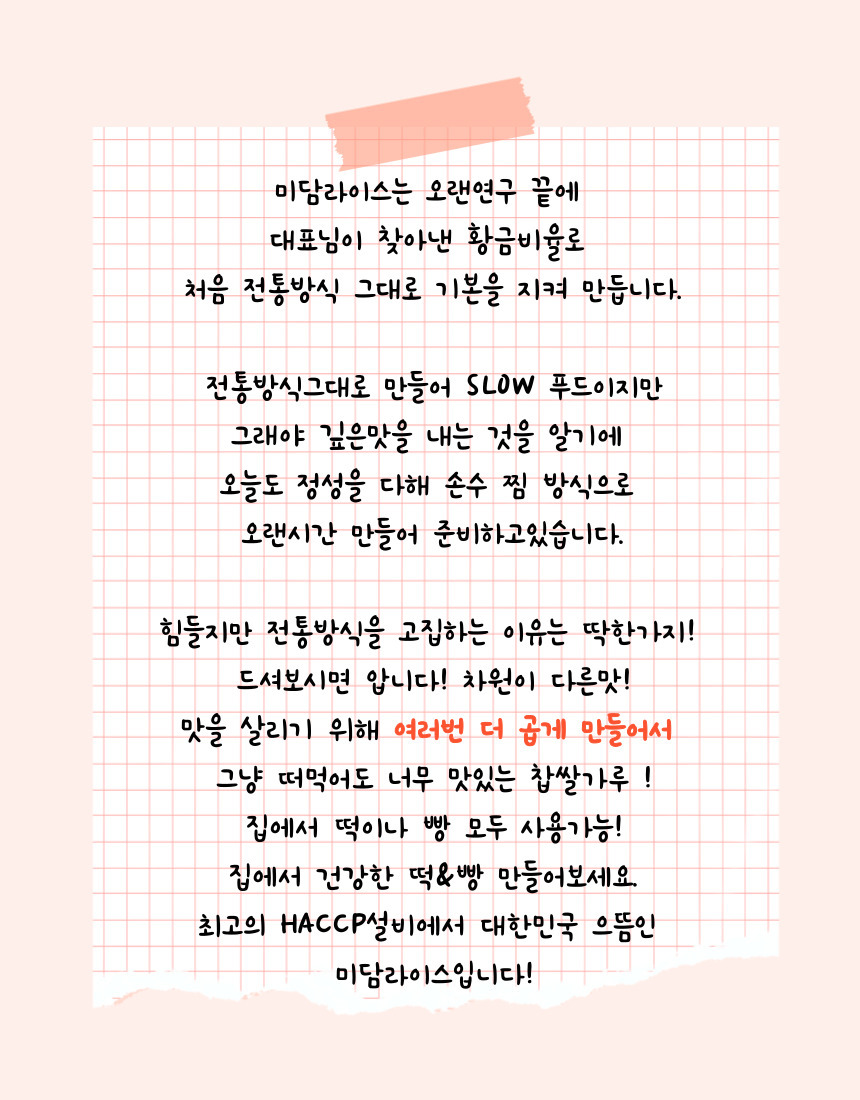 미담라이스는 오랜연구 끝에
대표님이 찾아낸 황금비율로
처음 전통방식 그대로 기본을 지켜 만듭니다.
전통방식그대로 만들어 SLOW 푸드이지만
그래야 깊은맛을 내는 것을 알기에
오늘도 정성을 다해 손수 찜 방식으로
오랜시간 만들어 준비하고있습니다.
힘들지만 전통방식을 고집하는 이유는 딱한가지!
드셔보시면 압니다! 차원이 다른맛!
맛을 살리기 위해 여러번 더 곱게 만들어서
그냥 떠먹어도 너무 맛있는 찹쌀가루 !
집에서 떡이나 빵 모두 사용가능!
집에서 건강한 떡&빵 만들어보세요.
최고의 HACCP설비에서 대한민국 으뜸인
미담라이스입니다!